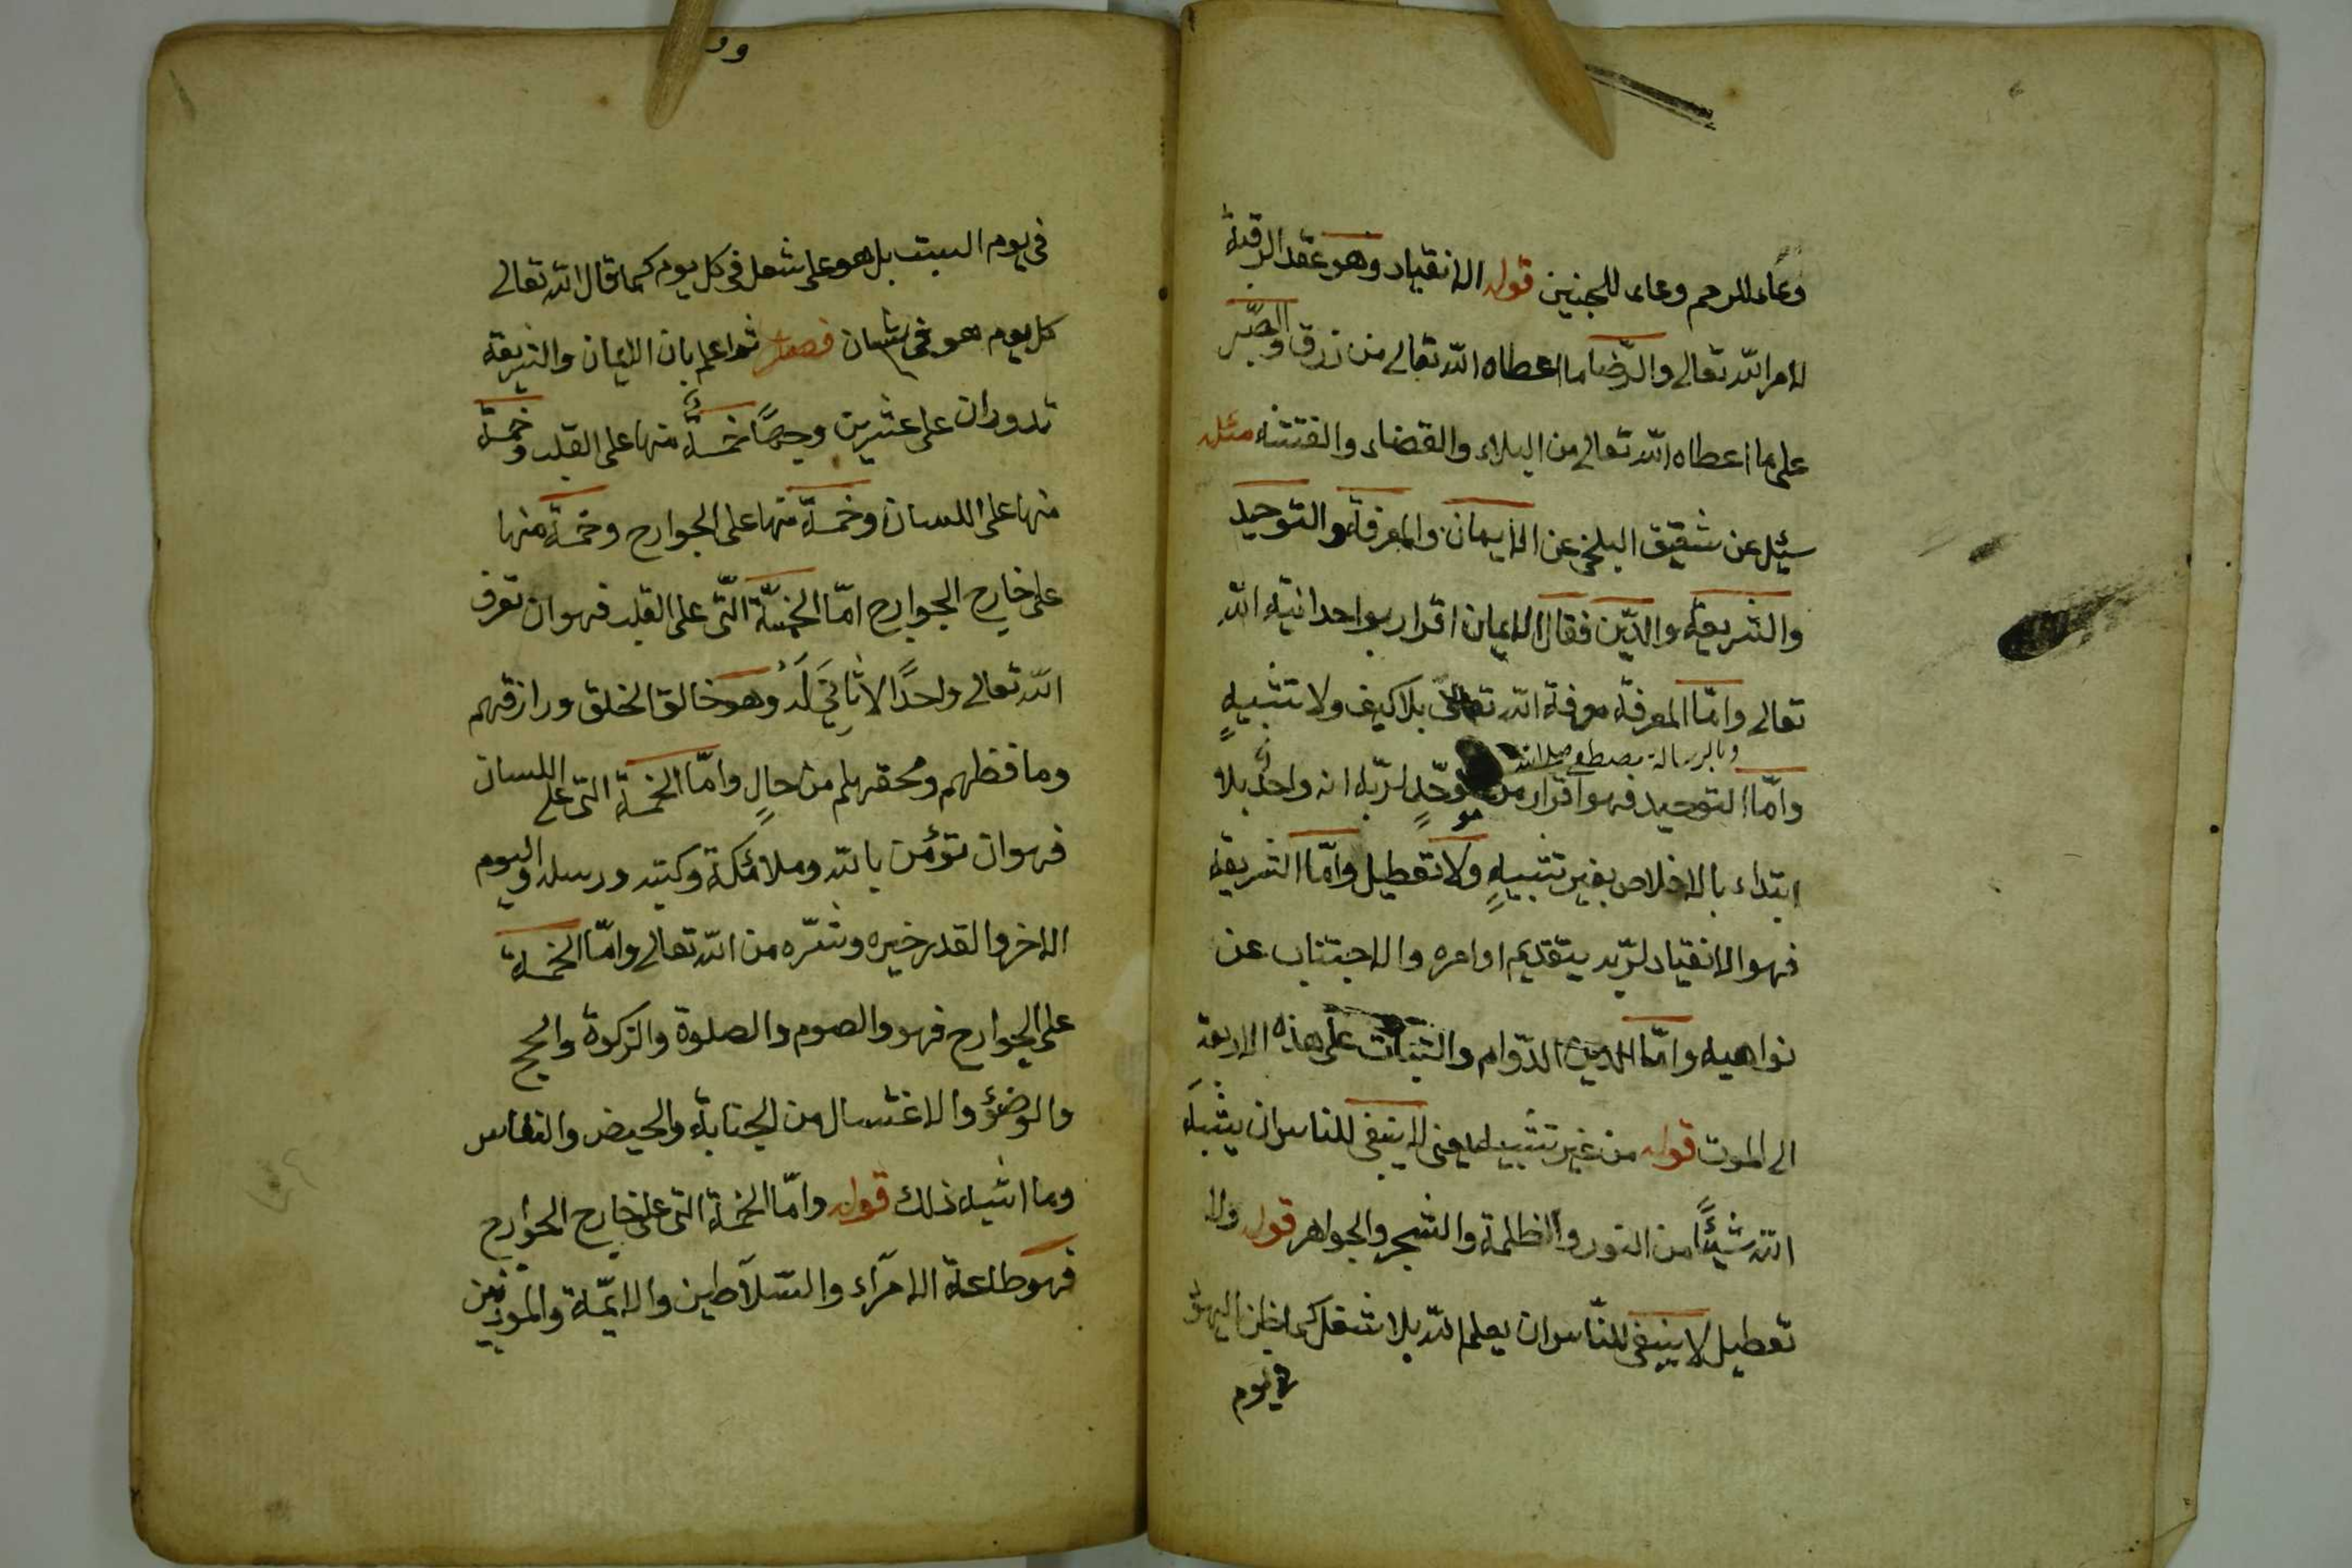 وعاء للرحم وعاء للجنين قوله الانقياد وهو عقد الرقبة
لامر الله تعالى والرّضا ما اعطاه الله تعالى من زرق والصّبر
على ما اعطاه الله تعالى من البلاء والقضاء والفتنه مثله
سئيل عن شقيق البلخى عن الايمان والمعرفة والتوحيد
والشريعة والدّين فقال الايمان اقرار بواحدانية الله
تعالى وامّا المعرفة معرفة الله تعالى بلا كيف ولا تشبيهٍ
وبالرسالة بمصطفى صلى الله
وامّا التوحيد فهو اقرار من موحّدٍ لربّه انه واحدٌ بلا
ابتداء بالاخلاص بغير تشبيهٍ ولا تعطيل وامّا الشريعة
فهو الانقياد لربّه بتقديم اوامره والاجتناب عن
نواهيه وامّا الدين الدّوام والثبات على هذه الاربعة
الى الموت قوله من غير تشبيه يعنى لا ينبغى للناس ان يشبه
الله شيئًا من النور والظلمة والشجر والجواهر قوله ولا
تعطيل لا ينبغى للنّاس ان يعلم الله بلا شغل كما ظن اليهود
فى يوم
فى يوم السبت بل هو على شعل فى كل يوم كما قال الله تعالى
كل يوم هو فى شان فصل ثم اعلم بان الايمان والشريعة
تدوران على عشرين وجهًا خمسةٌ منها على القلب وخمسة
منها على اللسان وخمسة منها على الجوارح وخمسة منها
على خارج الجوارح امّا الخمسة الّتى على القلب فهو ان تعرف
الله تعالى واحدًا لا ثانِىَ لَهُ وهو خالق الخلق ورازقهم
وما فظهم ومحقهم من حالٍ وامّا الخمسة التى على اللسان
فهو ان تؤمن بالله وملائكة وكتبه ورسله واليوم
الاخر والقدر خيره وشرّه من الله تعالى وامّا الخمسة
على الجوارح فهو والصوم والصلوة والزكوة والحج
والوضؤ والاغتسال من الجنابة والحيض والنفاس
وما اشبه ذلك قوله وامّا الخمسة التى على خارج الجوارح
فهو طاعة الامرآء والسّلاطين والايمّة والموذنين